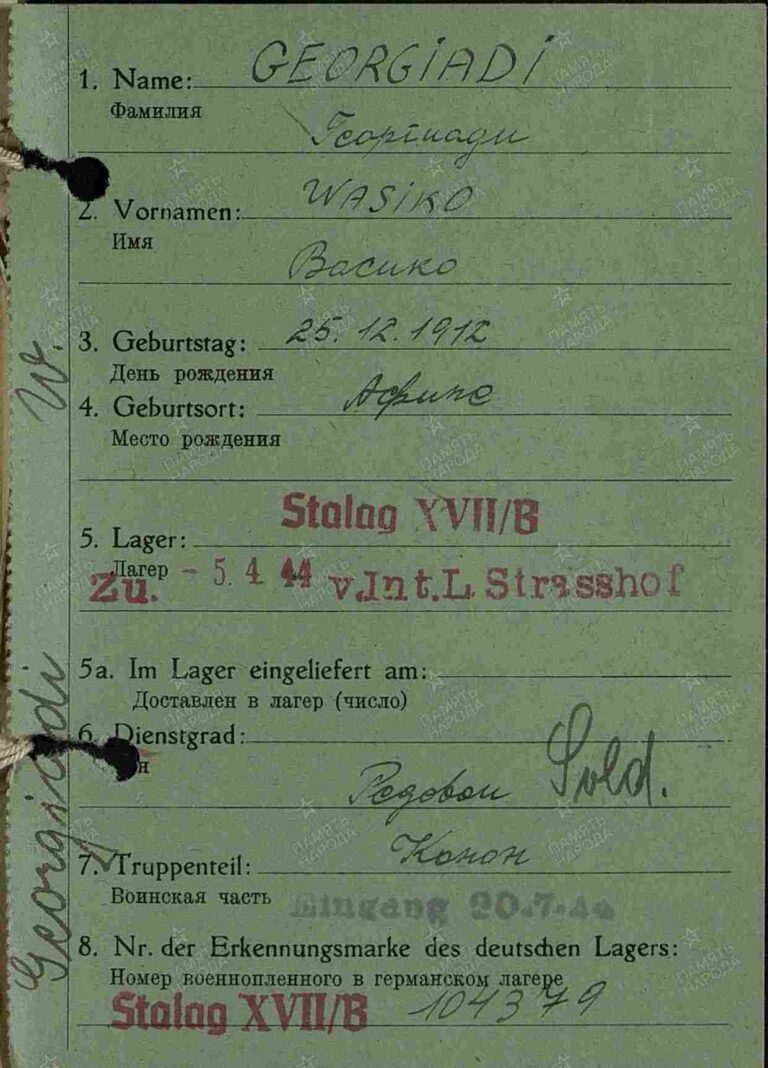 1. Name: GEORGIADI
Фамилия
Георгиади
2. Vornamen: WASIKO
Имя
Васико
3. Geburtstag: 25.12.1912
День рождения
4. Geburtsort: Афине
Место рождения
Stalag XVII/B
5. Lager:
Лагер
Zu. - 5. 4. 44 v.Int.L. Strasshof
5a. Im Lager eingeliefert am:
Доставлен в лагер (число)
6. Dienstgrad:
н
Редовои Sold.
7. Truppenteil: Конон
Воинская часть
Eingang 20.7.44
8. Nr. der Erkennungsmarke des deutschen Lagers:
Номер военнопленного в германском лагере
Stalag XVII/B 104379
Georgiadi W.
ПАМЯТЬ НАРОДА